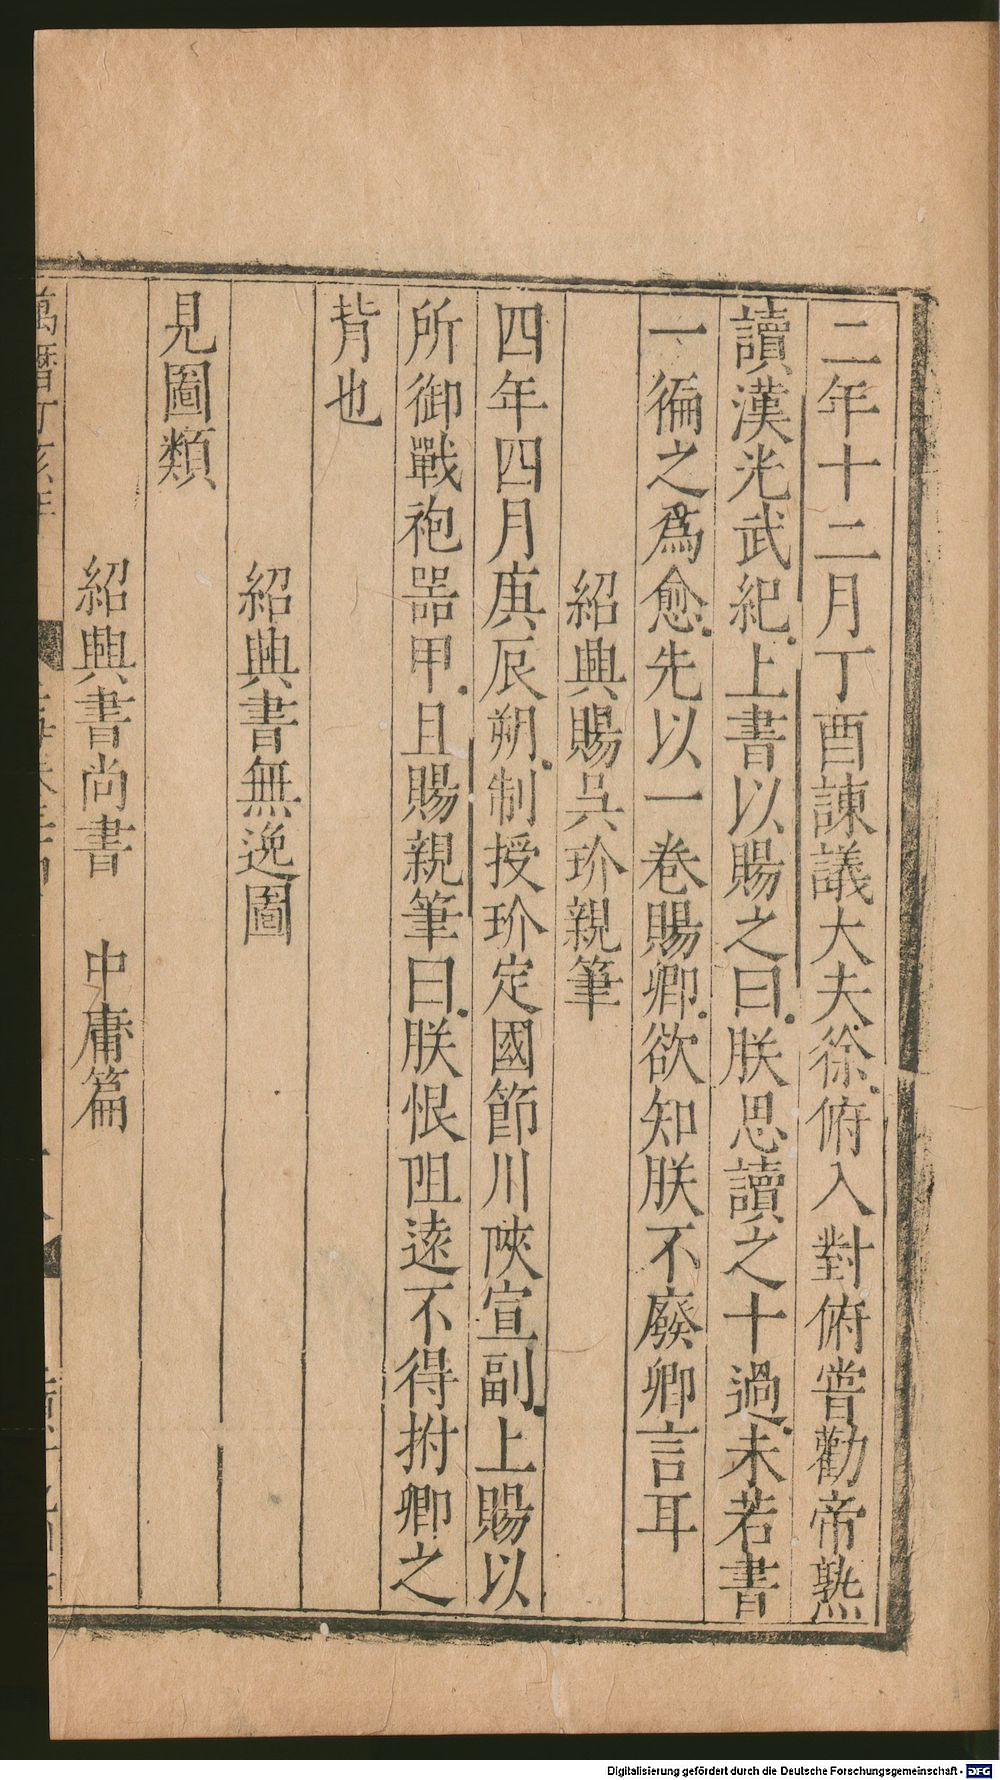 二年十二月丁酉諫議大夫徐俯入對俯嘗勸帝熟
讀漢光武紀上書以賜之曰朕思讀之十過未若書
一徧之爲愈先以一卷賜卿欲知朕不廢卿言耳
紹興賜吳玠親筆
四年四月庚辰朔制授玠定國節川陝宣副上賜以
所御戰袍噐甲且賜親筆曰朕恨阻逺不得拊卿之
背也
紹興書無逸圖
見圖類
紹興書尚書 中庸篇
萬曆丁亥年
Digitalisierung gefördert durch die Deutsche Forschungsgemeinschaft - DFG